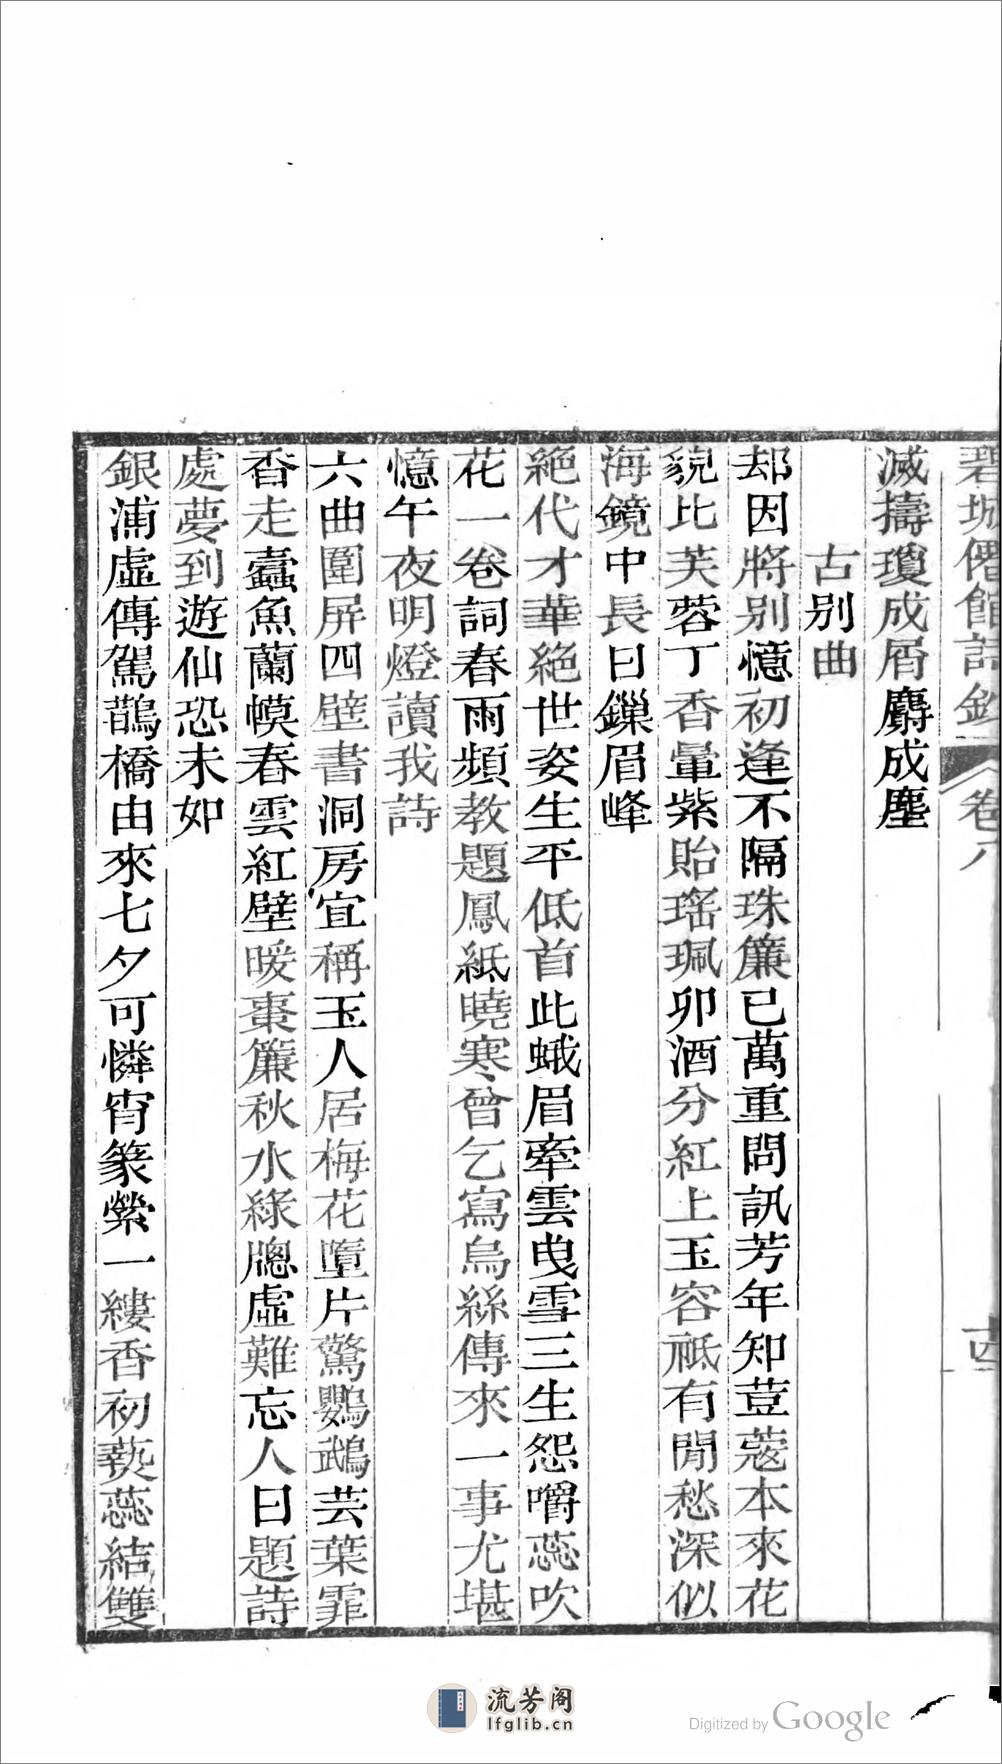 碧城僊館詩鈔 卷八 十四
滅擣瓊成屑麝成塵
古别曲
却因將别憶初逢不隔珠簾已萬重問訊芳年知荳蔻本來花
貌比芙蓉丁香暈紫貽瑤珮卯酒分紅上玉容祗有閒愁深似
海鏡中長日鏁眉峰
絶代才華絶世姿生平低首此蛾眉牽雲曳雪三生怨嚼蕊吹
花一卷詞春雨頻教題鳳紙曉寒曾乞寫烏絲傳來一事尤堪
憶午夜明燈讀我詩
六曲圍屏四壁書洞房宜稱玉人居梅花墮片驚鸚鵡芸葉霏
香走蠹魚蘭幙春雲紅壁暖棗簾秋水綠牕虛難忘人日題詩
處夢到遊仙恐未如
銀浦虛傳駕鵲橋由來七夕可憐宵篆縈一縷香初爇蕊結雙
流芳阁
lfglib.cn
Digitized by Google